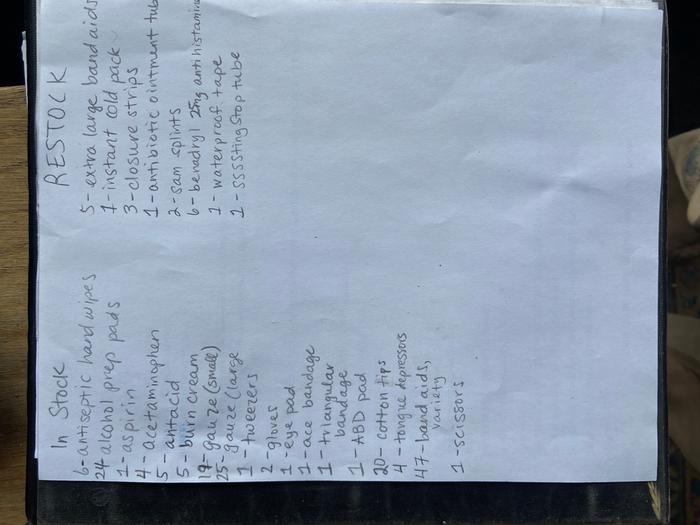 In Stock
6-antiseptic hand wipes
24 alcohol prep pads
1-aspirin
4-acetaminophen
5-antacid
5-burn cream
19-gauze (small)
25-gauze (large
1-tweezers
2-gloves
1-eye pad
1-ace bandage
1-triangular
bandage
1-ABD pad
20-cotton tips
4-tongue depressors
47-band aids,
variety
1-scissors
RESTOCK
5-extra large band aids
1-instant cold pack
3-closure strips
1-antibiotic ointment tub
2-sam splints
6-benadryl 25mg antihistamine
1-waterproof tape
1-sssssting stop tube